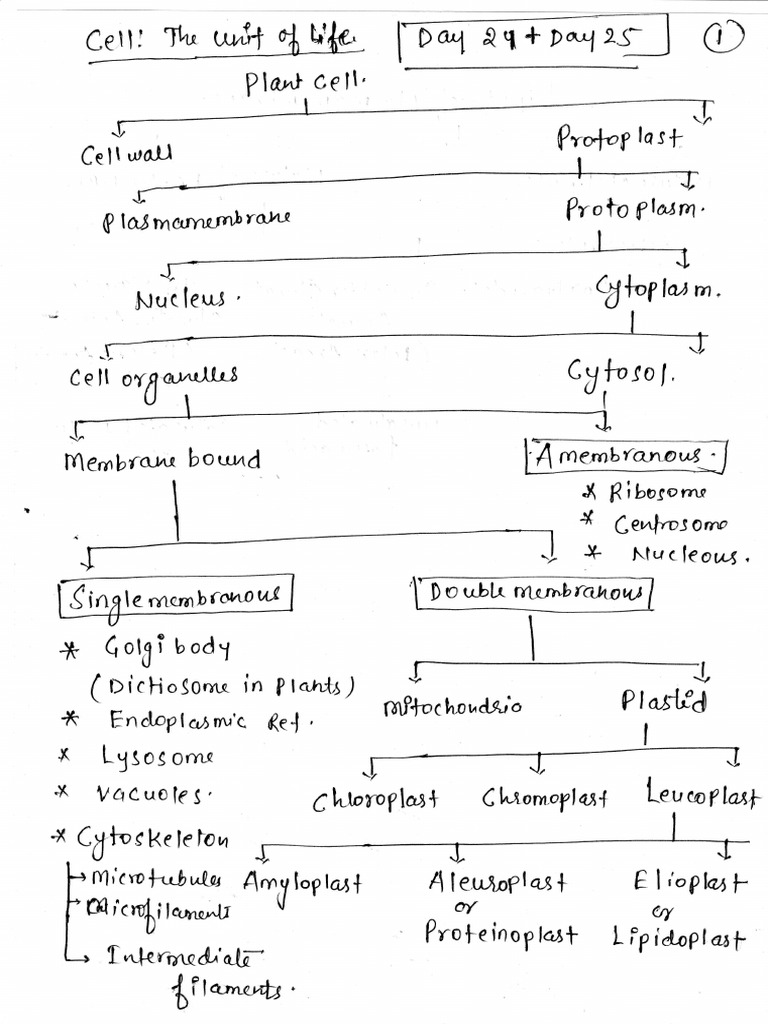 Cell: The unit of life. Day 24 + Day 25 1
Plant cell.
Cell wall Protoplast
Plasmamembrane Protoplasm.
Nucleus. Cytoplasm.
Cell organelles Cytosol.
Membrane bound Amembranous.
* Ribosome
* Centrosome
* Nucleous.
Single membranous Double membranous
* Golgi body
(Dictiosome in plants)
* Endoplasmic Ret.
* Lysosome
* Vacuoles.
* Cytoskeleton
Microtubules
Microfilaments
Intermediate
filaments.
Mitochondria Plastid
Chloroplast Chromoplast Leucoplast
Amyloplast Aleuroplast Elioplast
or or
Proteinoplast Lipidoplast